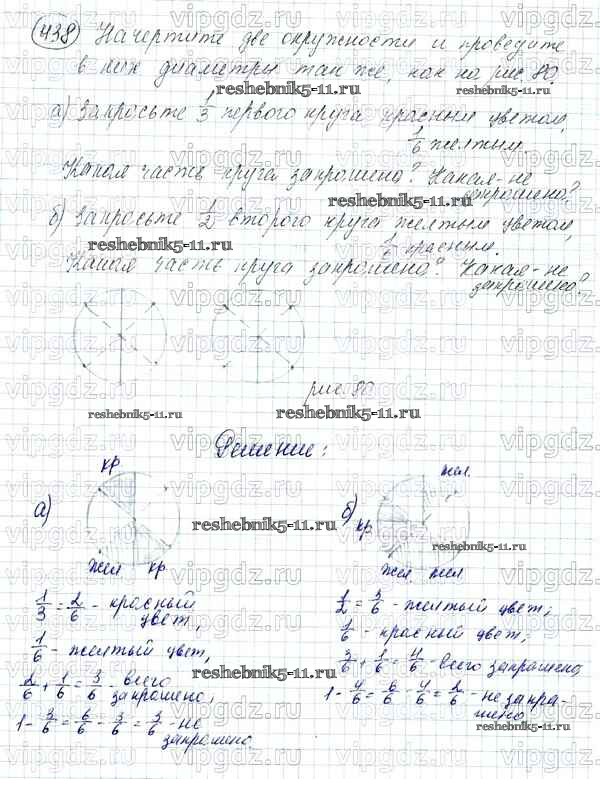 438 Начертите две окружности и проведите
в них диаметры так же, как на рис. 80.
а) Закрасьте 1/3 первого круга красным цветом,
1/6 желтым.
Какая часть круга закрашена? Какая - не
закрашена?
б) Закрасьте 1/2 второго круга желтым цветом,
1/6 красным.
Какая часть круга закрашена? Какая - не
закрашена?
рис. 80
Решение:
а)
кр
жел кр
1/3 = 2/6 - красный
цвет,
1/6 - желтый цвет,
2/6 + 1/6 = 3/6 - всего
закрашено,
1 - 3/6 = 6/6 - 3/6 = 3/6 - не
закрашено
б)
жел.
кр
жел жел
1/2 = 3/6 - желтый цвет;
1/6 - красный цвет;
3/6 + 1/6 = 4/6 - всего закрашено
1 - 4/6 = 6/6 - 4/6 = 2/6 - не закра-
шено
vipgdz.ru
reshebnik5-11.ru